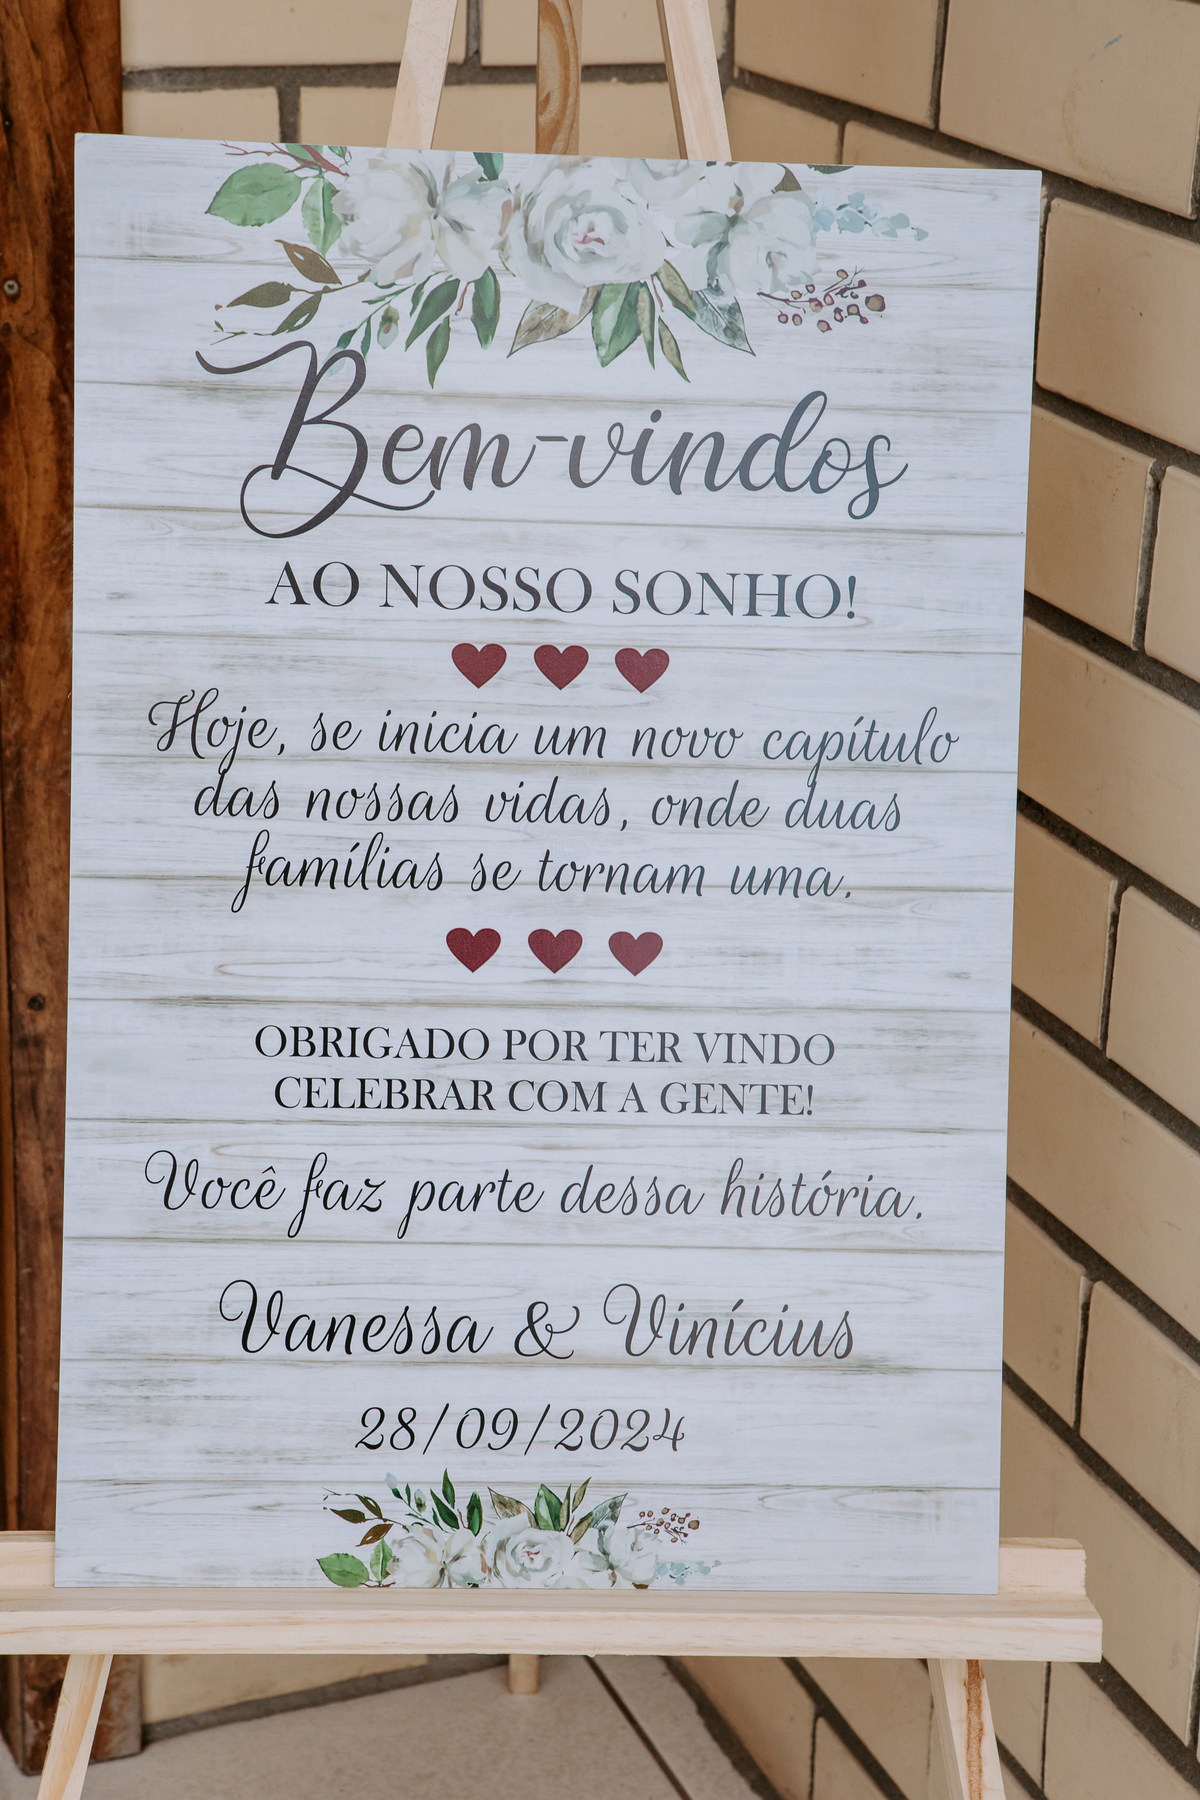 Bem-vindos
AO NOSSO SONHO!
Hoje, se inicia um novo capítulo
das nossas vidas, onde duas
famílias se tornam uma.
OBRIGADO POR TER VINDO
CELEBRAR COM A GENTE!
Você faz parte dessa história.
Vanessa & Vinícius
28/09/2024